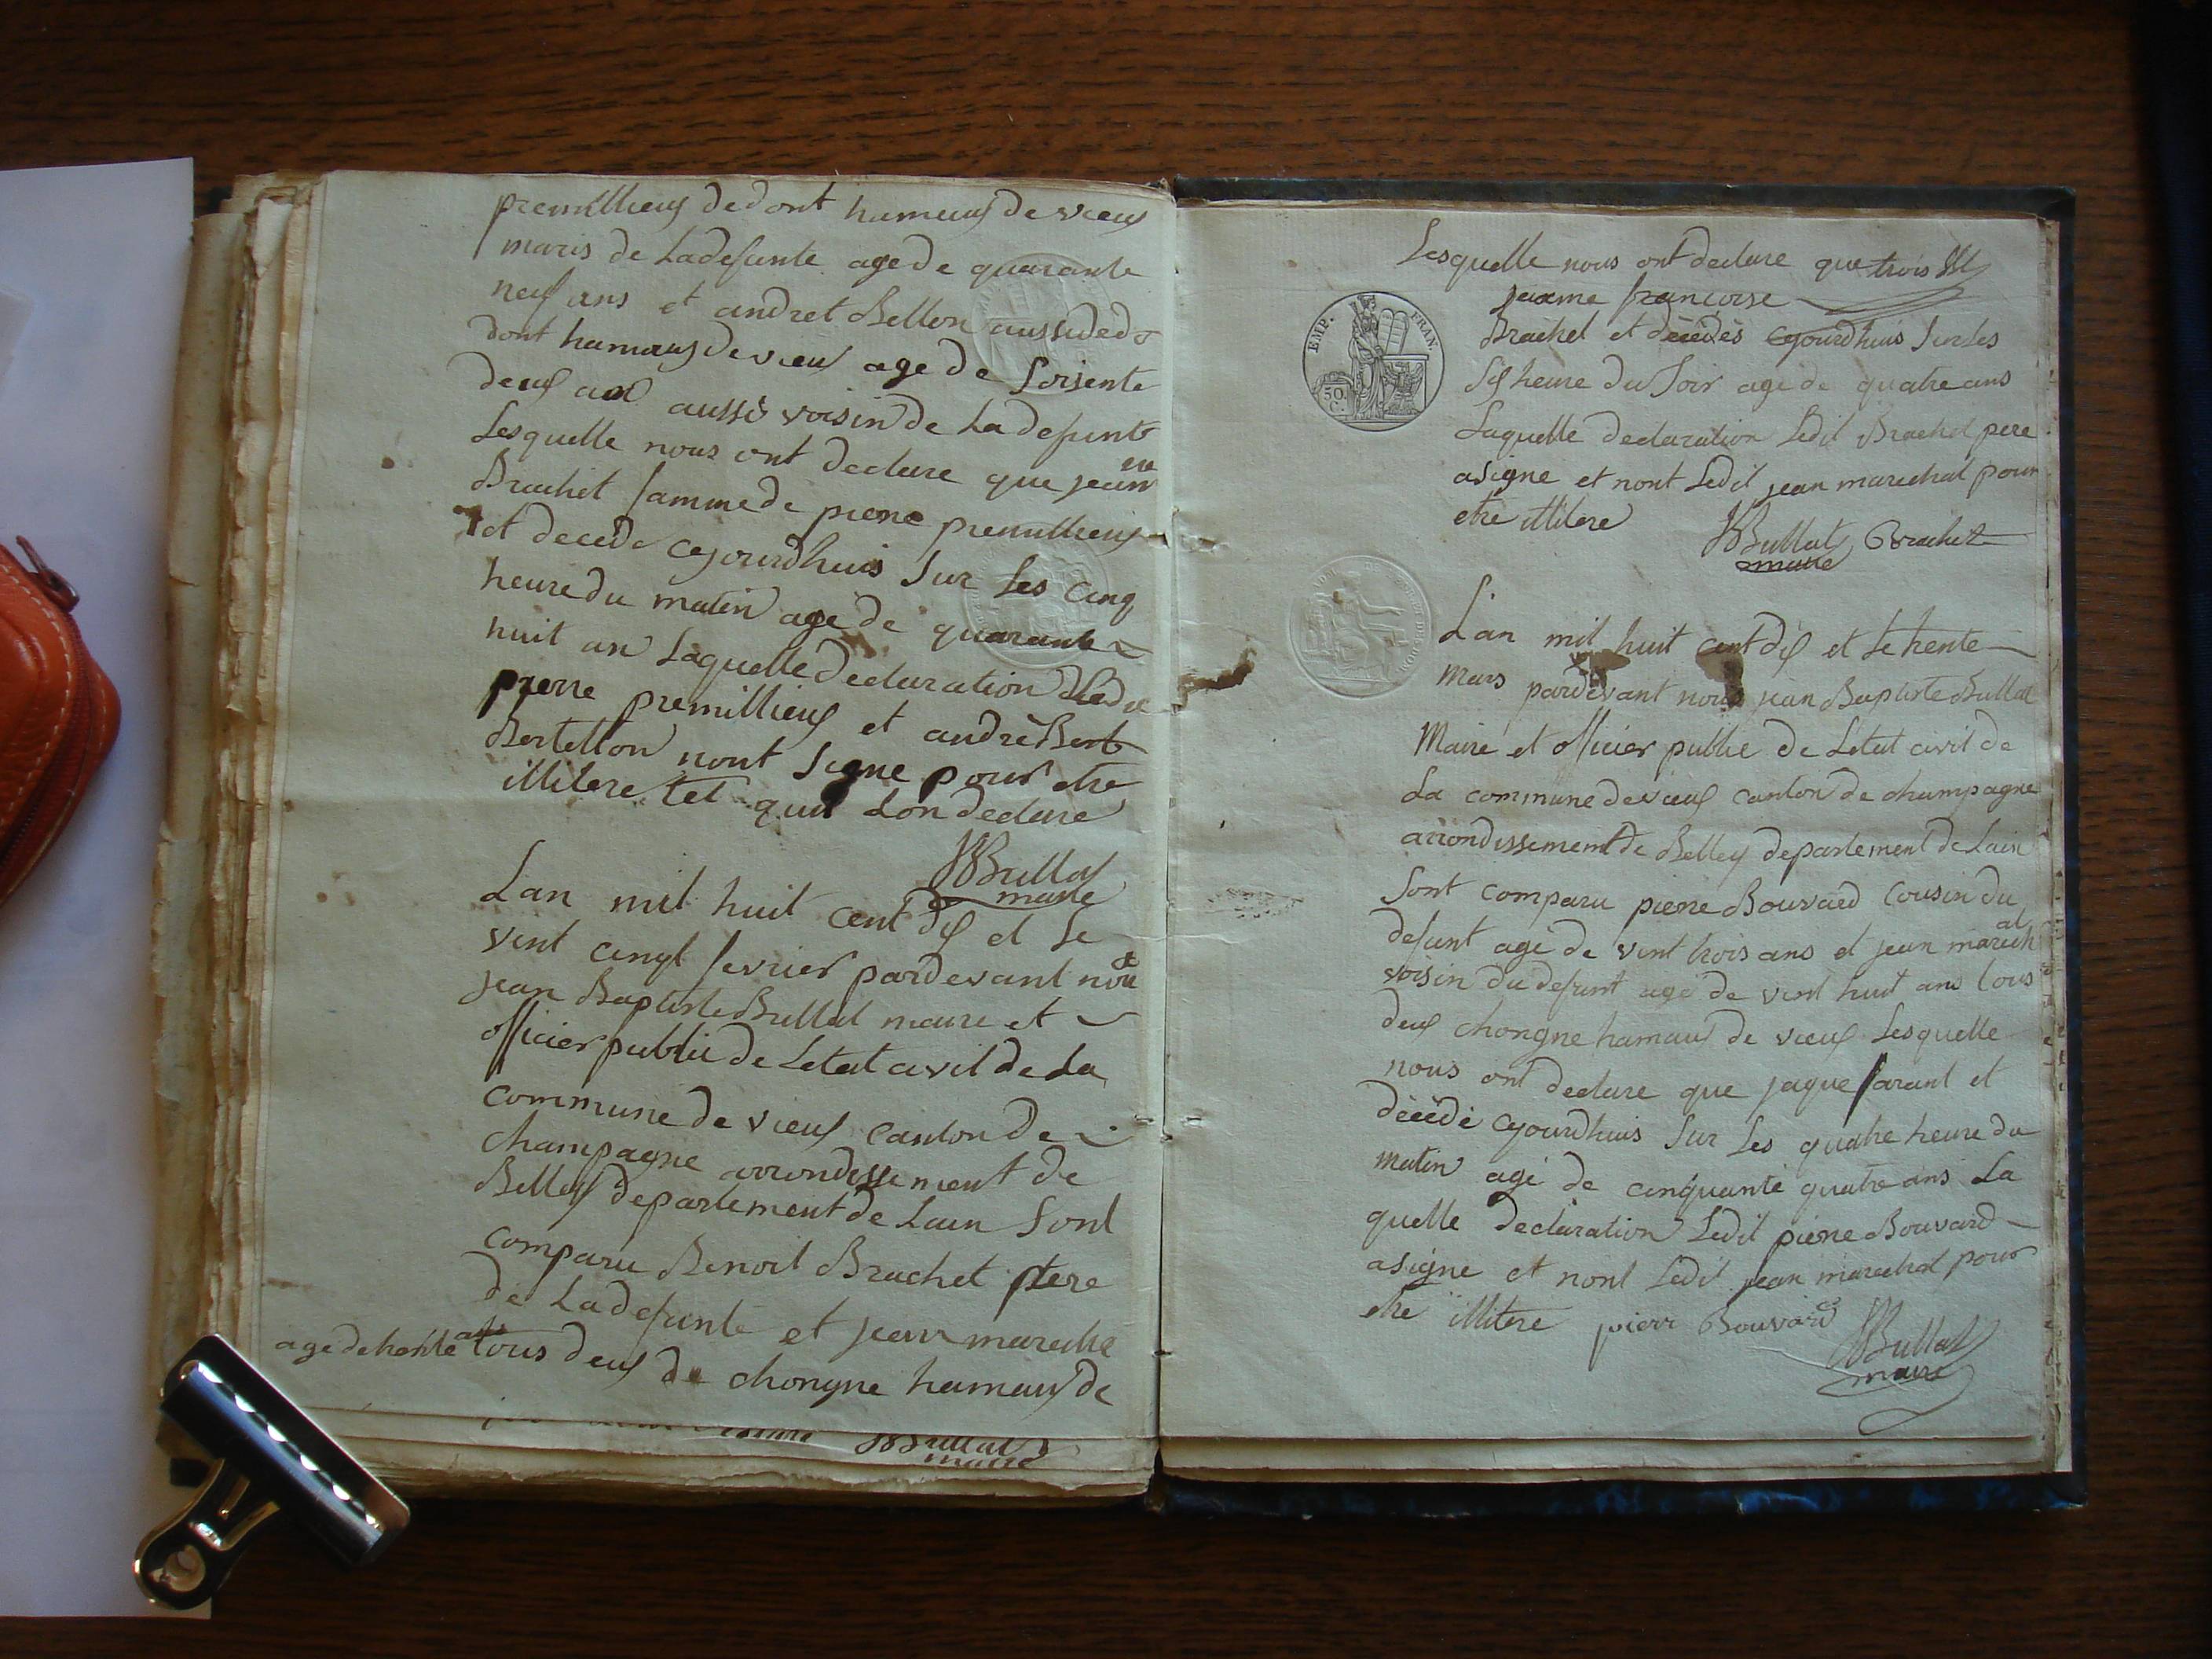 premillieus dedont hameaus de vieus
maris de Ladefunte age de quarante
neuf ans et andret Bellon aussi dedo
dont hamaus de vieus age de soisente
deus an aussi voisin de La defunte
Lesquelle nous ont declare que jeanne
Brachet famme de pierre premillieus
et decede cejourdhuis sur les cinq
heure du matin age de quarante
huit an Laquelle declaration Ledit
pierre premillieus et andré Bert
Bertellon nont signe pour etre
illitere tel quil Lon declare
JBBullat
maire
Lan mil huit cent dis et le
vint cinqt fevrier pardevant nous
jean Baptiste Bullat maire et
officier public de Letat civil de La
commune de vieus canton de
champagne arrondissement de
Belley departement de Lain sont
comparu Benoit Brachet pere
de La defunte et jean marecha
age de trente ans tous deus de chongne hamaus de
JBBullat
maire
Lesquelle nous ont declare que trois
jeanne françoise
Brachet et décédés cejourdhuis sur les
sis heure du soir age de quatre ans
Laquelle declaration Ledit Brachet pere
asigne et nont Ledit jean marechal pour
etre illitere
JBBullat Brachet
maire
EMP. FRAN.
50.
C.
Lan mil huit cent dis et le trente
mars pardevant nous jean Baptiste Bullat
Maire et officier public de Letat civil de
La commune de vieus canton de champagne
arrondissement de Belley departement de Lain
sont comparu pierre Bouvard cousin du
defunt agé de vint trois ans et jean marechal
voisin du defunt agé de vint huit ans tous
deus chongne hamaus de vieus Lesquelle
nous ont declare que jaque farant et
décédé cejourdhuis sur les quatre heure du
matin agé de cinquante quatre ans La
quelle declaration Ledit pierre Bouvard
asigne et nont Ledit jean marechal pour
etre illitere pierr Bouvard
JBBullat
maire